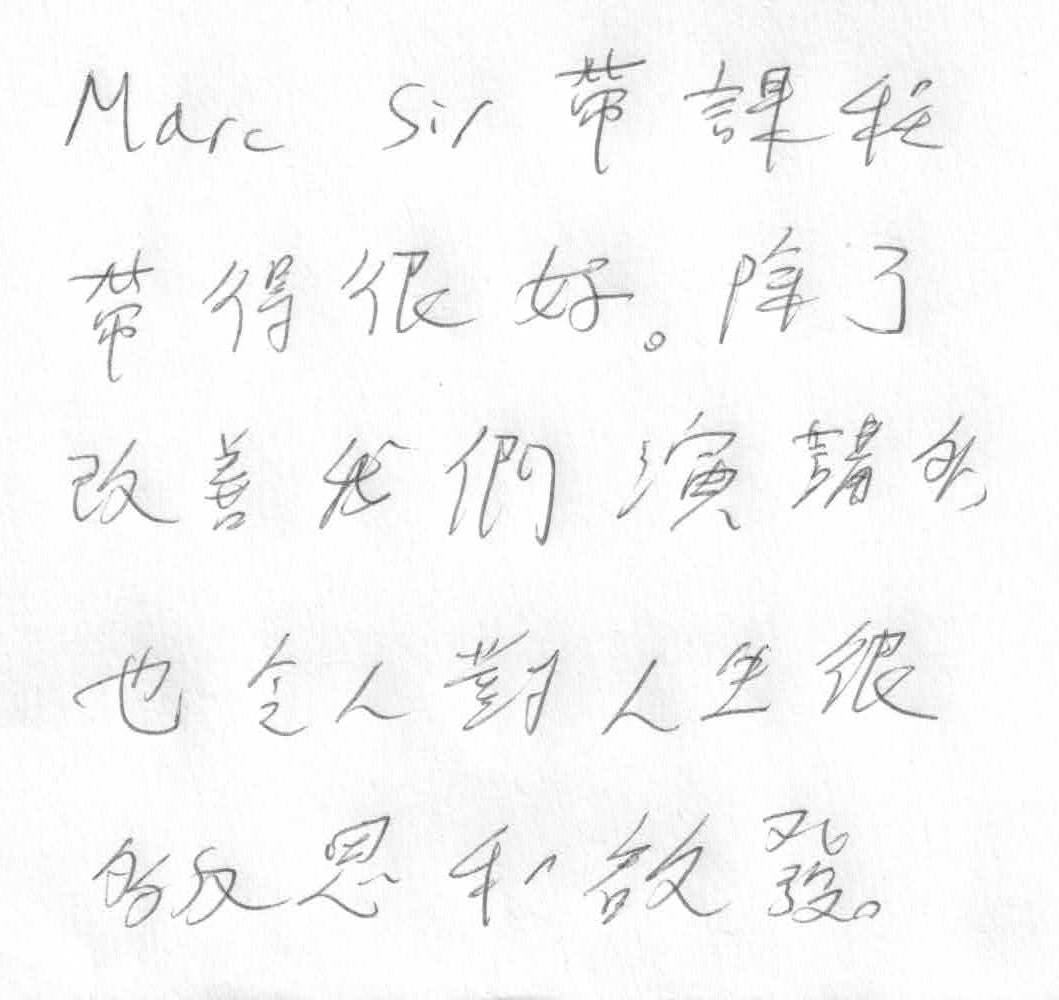 Marc Sir 帶課程
帶得很好。除了
改善我們演講外
也令人對人生很
的反思和啟發。